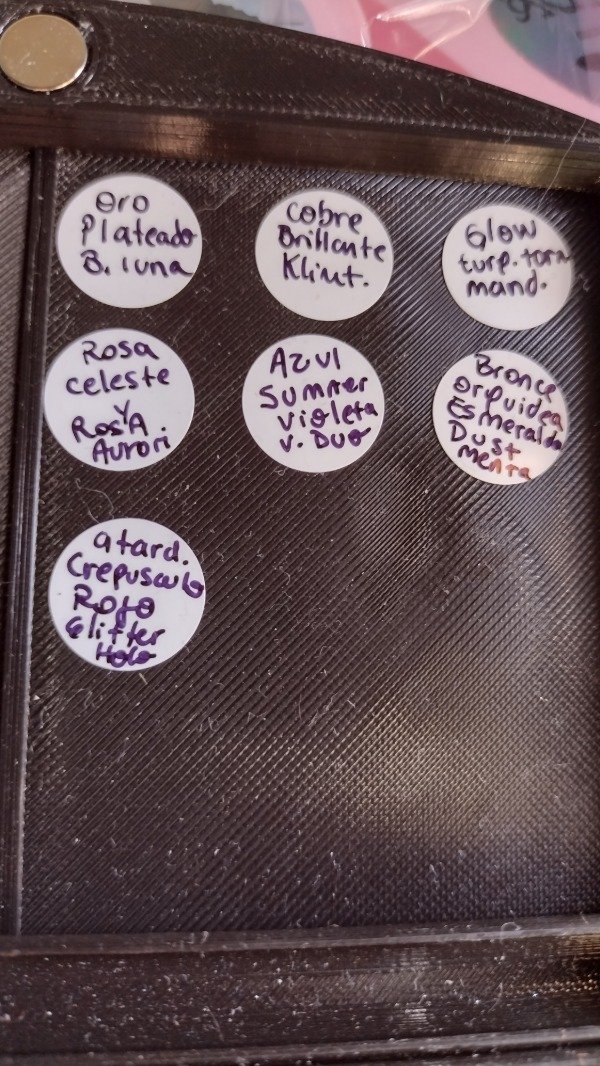 Oro
Plateado
B. luna
Cobre
Brillante
Klimt.
Glow
turp. torn
mand.
Rosa
celeste
y
Rosa.
Aurori.
Azul
Summer
violeta
v. Duo
Bronce
Orquidea
Esmeralda
Dust
menta
atard.
Crepusculo
Rojo
Glitter
Holo